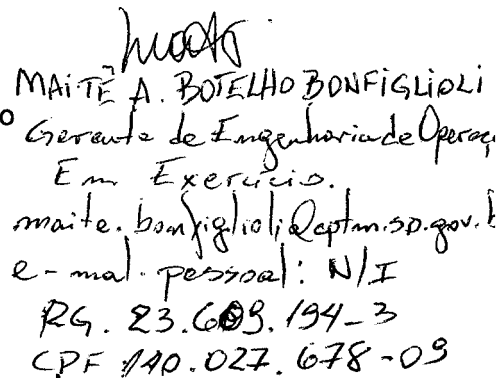 MAITÊ A. BOTELHO BONFIGLIOLI
o Gerente de Engenharia de Operaç
Em Exercício.
maite.bonfiglioli@cptm.sp.gov.b
e-mal pessoal: N/I
RG. 23.609.194-3
CPF 140.027.678-09